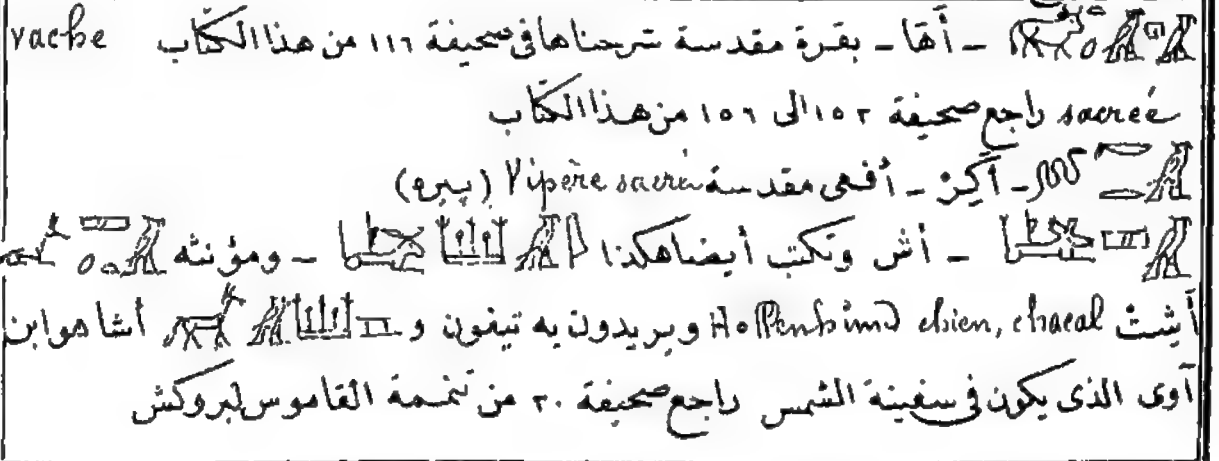 - أَهَا - بقرة مقدسة شرحناها فى صحيفة ١١٦ من هذا الكتاب vache
sacrée راجع صحيفة ١٥٢ الى ١٥٦ من هذا الكتاب
- آكِرْ - أفعى مقدسة Vipère sacrée (بيره)
- أش وتكتب أيضا هكذا - ومؤنثه
أَشِتْ Höllenhund chien, chacal ويريدون به تيفون و أشا هو ابن
آوى الذى يكون فى سفينة الشمس راجع صحيفة ٢٠ من تتمة القاموس لبروكش